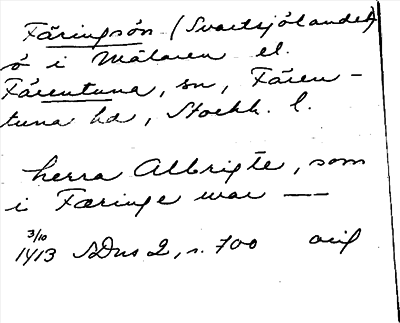 Färingsön (Svartsjölandet)
ö i Mälaren el.
Färentuna, sn, Fären-
tuna hd, Stockh. l.
herra Albrigte, som
i Færinge war —
3/10
1413 SDns 2, s. 700 orig